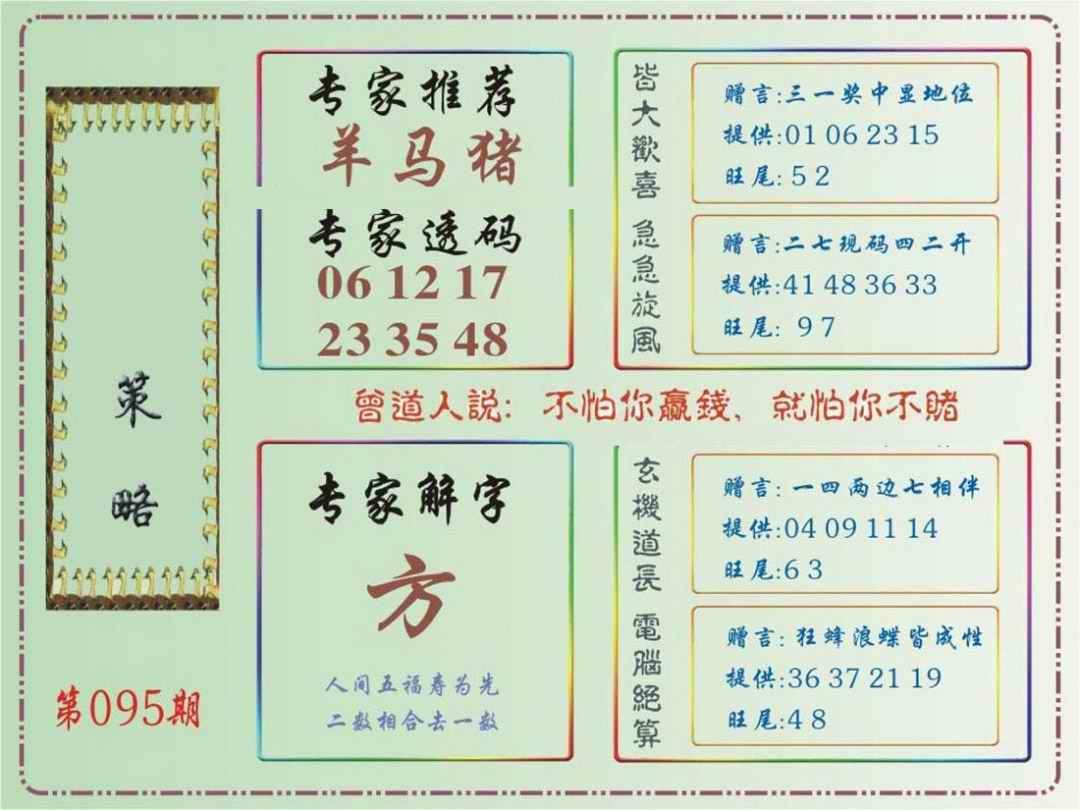 策
略
第095期
专家推荐
羊马猪
专家透码
06 12 17
23 35 48
皆大歡喜
赠言:三一奖中显地位
提供:01 06 23 15
旺尾: 5 2
急急旋風
赠言:二七现码四二开
提供:41 48 36 33
旺尾: 9 7
曾道人説: 不怕你贏錢、就怕你不賭
专家解字
方
人间五福寿为先
二数相合去一数
玄機道長
赠言: 一四两边七相伴
提供:04 09 11 14
旺尾:6 3
電腦絕算
赠言: 狂蜂浪蝶皆成性
提供:36 37 21 19
旺尾:4 8